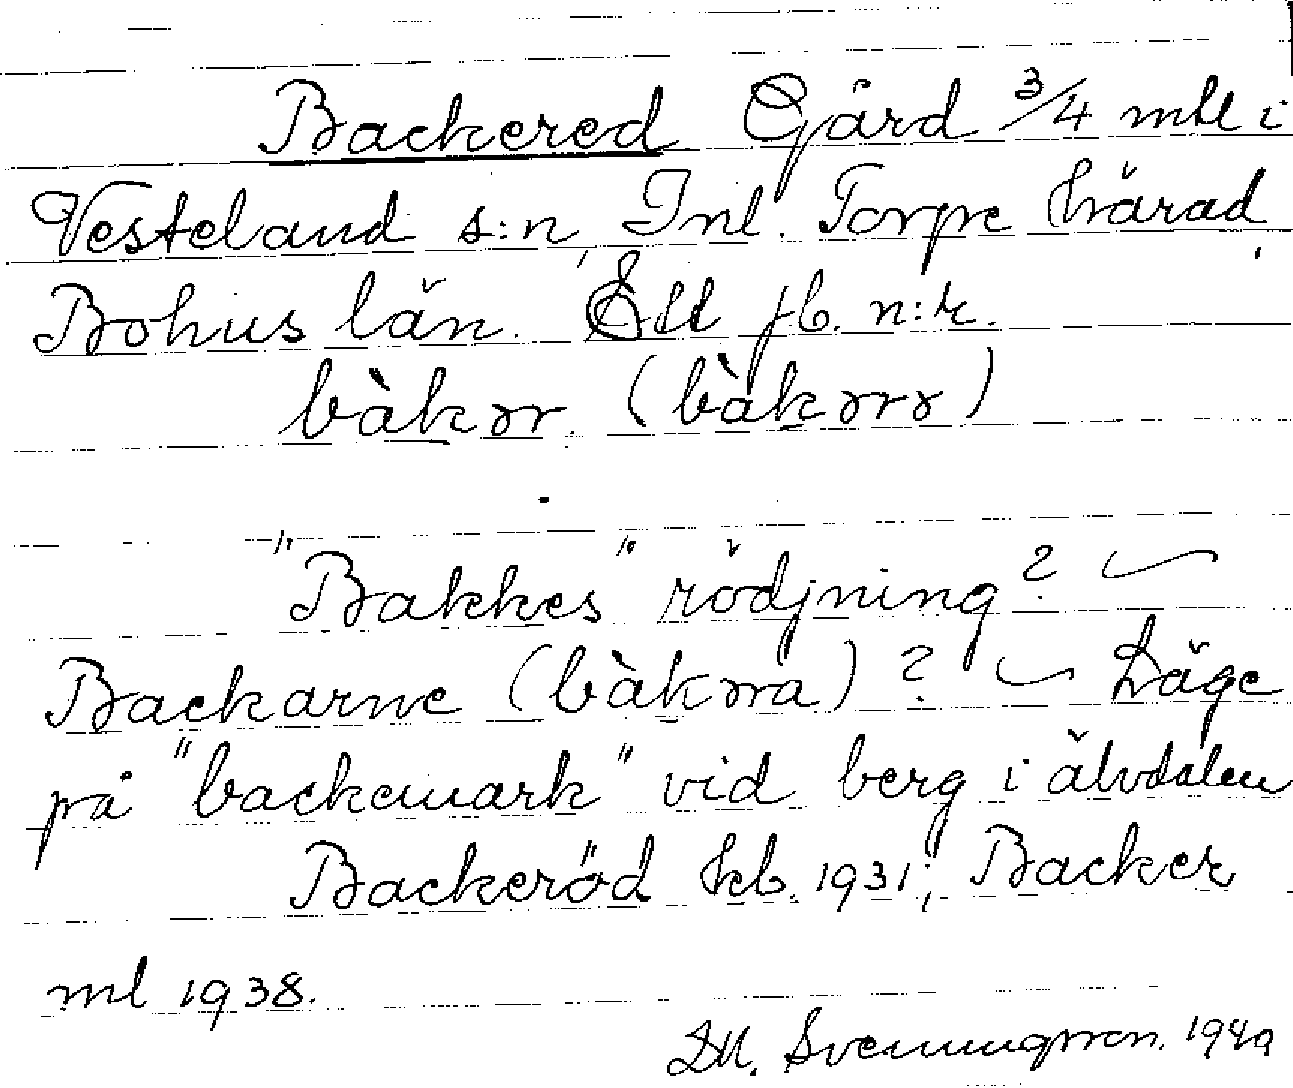 Backered Gård 3/4 mtl i
Vesteland s:n, Inl. Torpe härad,
Bohus län. Ett jb. n:r.
bàkɤr. (bàkɤrɤ)
"Bakkes" rödjning? ~
Backarne (bàkɤra)? ~ Läge
på "backemark" vid berg i älvdalen
Backeröd kb. 1931; Backer
ml 1938.
Svenningsson. 1940